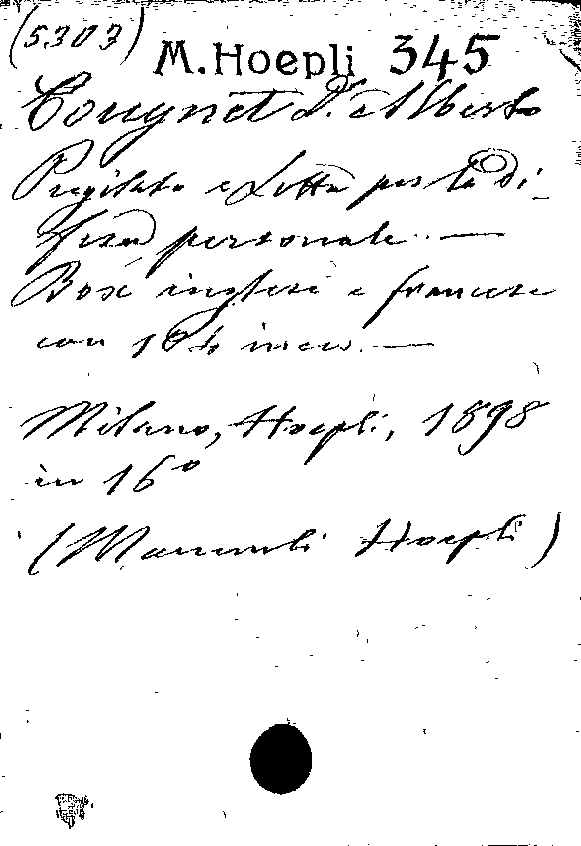 (5303)
M. Hoepli 345
Cougnet Dr. Alberto
Pugilato e Lotta per la di-
fesa personale. —
Box inglese e francese
con 104 incis. —
Milano, Hoepli, 1898
in 16°
(Manuali Hoepli)